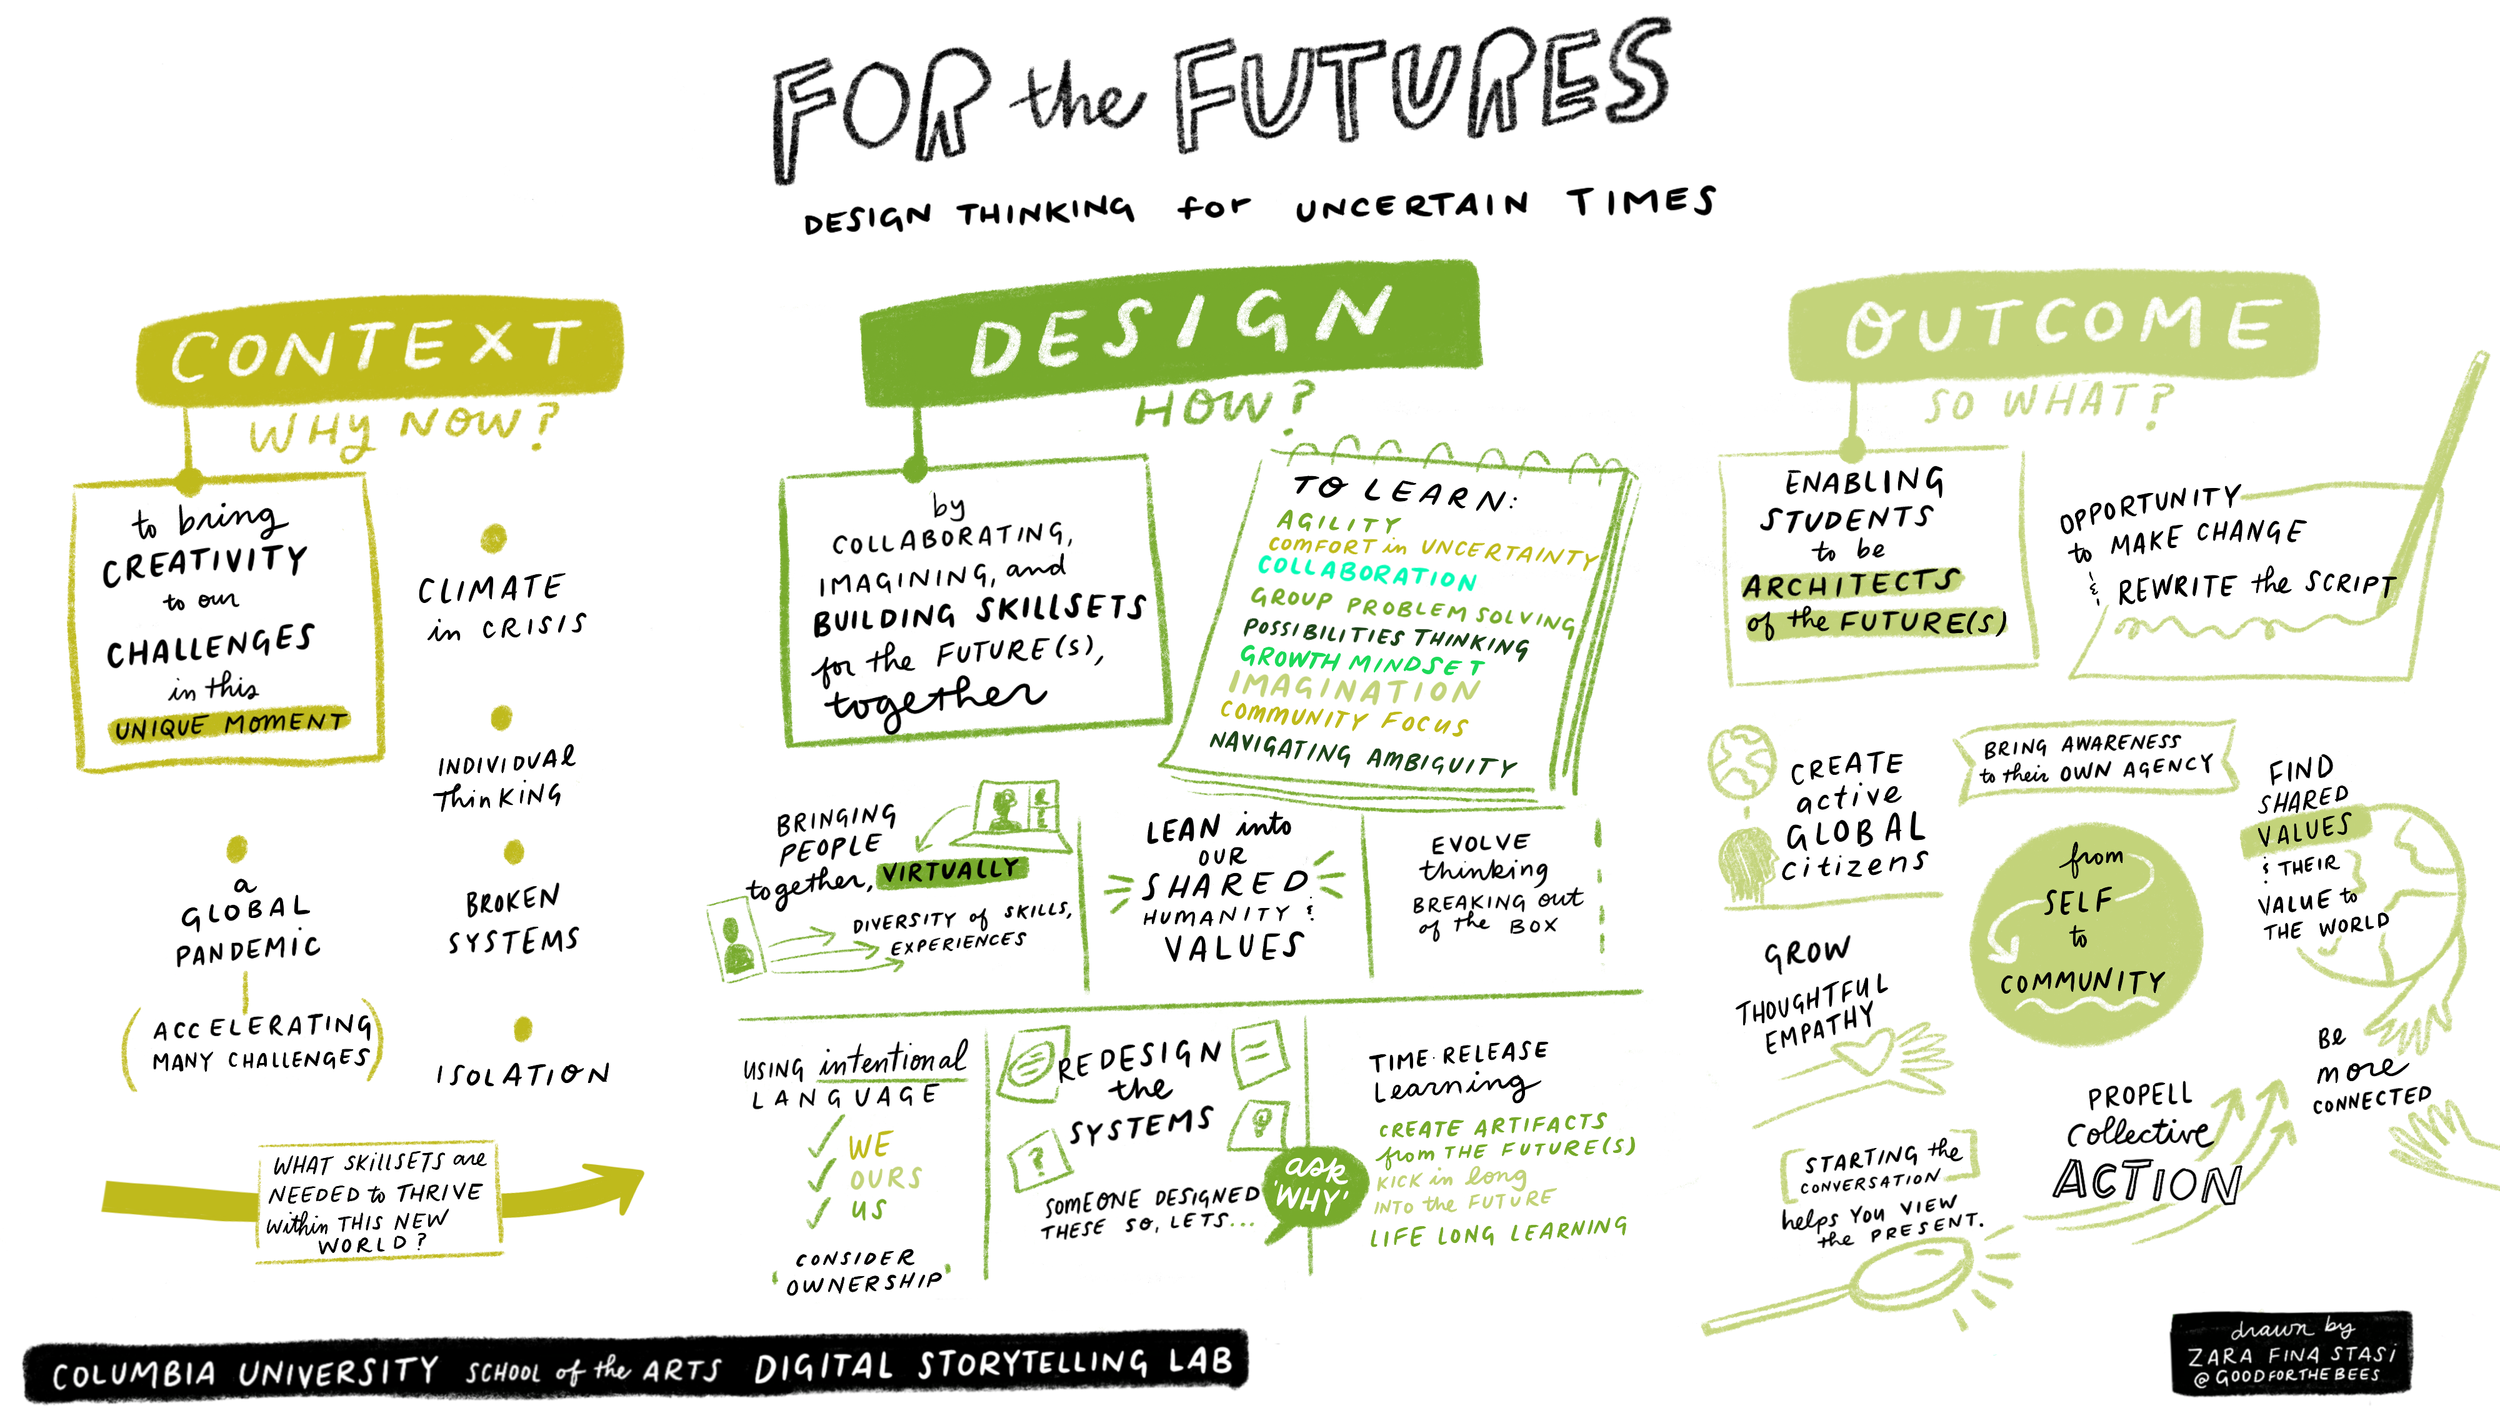 FOR the FUTURES
DESIGN THINKING for UNCERTAIN TIMES
CONTEXT
WHY NOW?
to bring
CREATIVITY
to our
CHALLENGES
in this
UNIQUE MOMENT
CLIMATE
in CRISIS
INDIVIDUAL
THINKING
a
GLOBAL
PANDEMIC
(ACCELERATING
MANY CHALLENGES)
BROKEN
SYSTEMS
ISOLATION
WHAT SKILLSETS are
NEEDED to THRIVE
within THIS NEW
WORLD?
DESIGN
HOW?
by
COLLABORATING,
IMAGINING, and
BUILDING SKILLSETS
for the FUTURE(S),
together
TO LEARN:
AGILITY
COMFORT in UNCERTAINTY
COLLABORATION
GROUP PROBLEM SOLVING
POSSIBILITIES THINKING
GROWTH MINDSET
IMAGINATION
COMMUNITY FOCUS
NAVIGATING AMBIGUITY
BRINGING
PEOPLE
together, VIRTUALLY
DIVERSITY of SKILLS,
EXPERIENCES
LEAN into
OUR
SHARED
HUMANITY &
VALUES
EVOLVE
thinking
BREAKING out
of the BOX
USING intentional
LANGUAGE
WE
OURS
US
'CONSIDER
OWNERSHIP'
REDESIGN
the
SYSTEMS
?
SOMEONE DESIGNED
THESE SO, LETS...
ask
'WHY'
TIME·RELEASE
Learning
CREATE ARTIFACTS
from THE FUTURE(S)
KICK in long
INTO the FUTURE
LIFE LONG LEARNING
OUTCOME
SO WHAT?
ENABLING
STUDENTS
to be
ARCHITECTS
of the FUTURE(S)
OPPORTUNITY
to MAKE CHANGE
& REWRITE the SCRIPT
CREATE
active
GLOBAL
citizens
BRING AWARENESS
to their OWN AGENCY
FIND
SHARED
VALUES
& THEIR
VALUE to
THE WORLD
from
SELF
to
COMMUNITY
GROW
THOUGHTFUL
EMPATHY
Be
more
CONNECTED
PROPELL
Collective
ACTION
[STARTING the
CONVERSATION]
helps YOU VIEW
the PRESENT.
COLUMBIA UNIVERSITY SCHOOL of the ARTS DIGITAL STORYTELLING LAB
drawn by
ZARA FINA STASI
@GOODFORTHEBEES